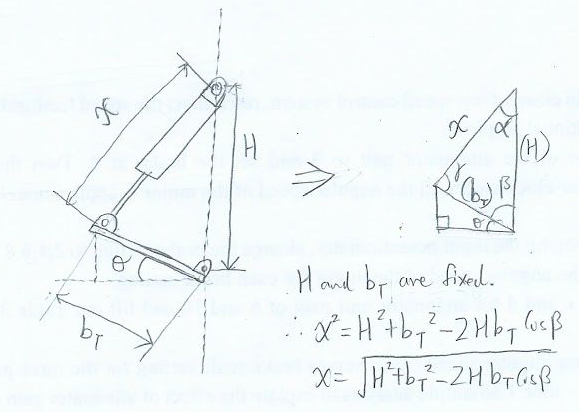 x
H
θ
b_T
⇒
x
α
(H)
γ
(b_T)
β
θ
H and b_T are fixed.
∴ x² = H² + b_T² - 2Hb_T Cosβ
x = √(H² + b_T² - 2Hb_T Cosβ)